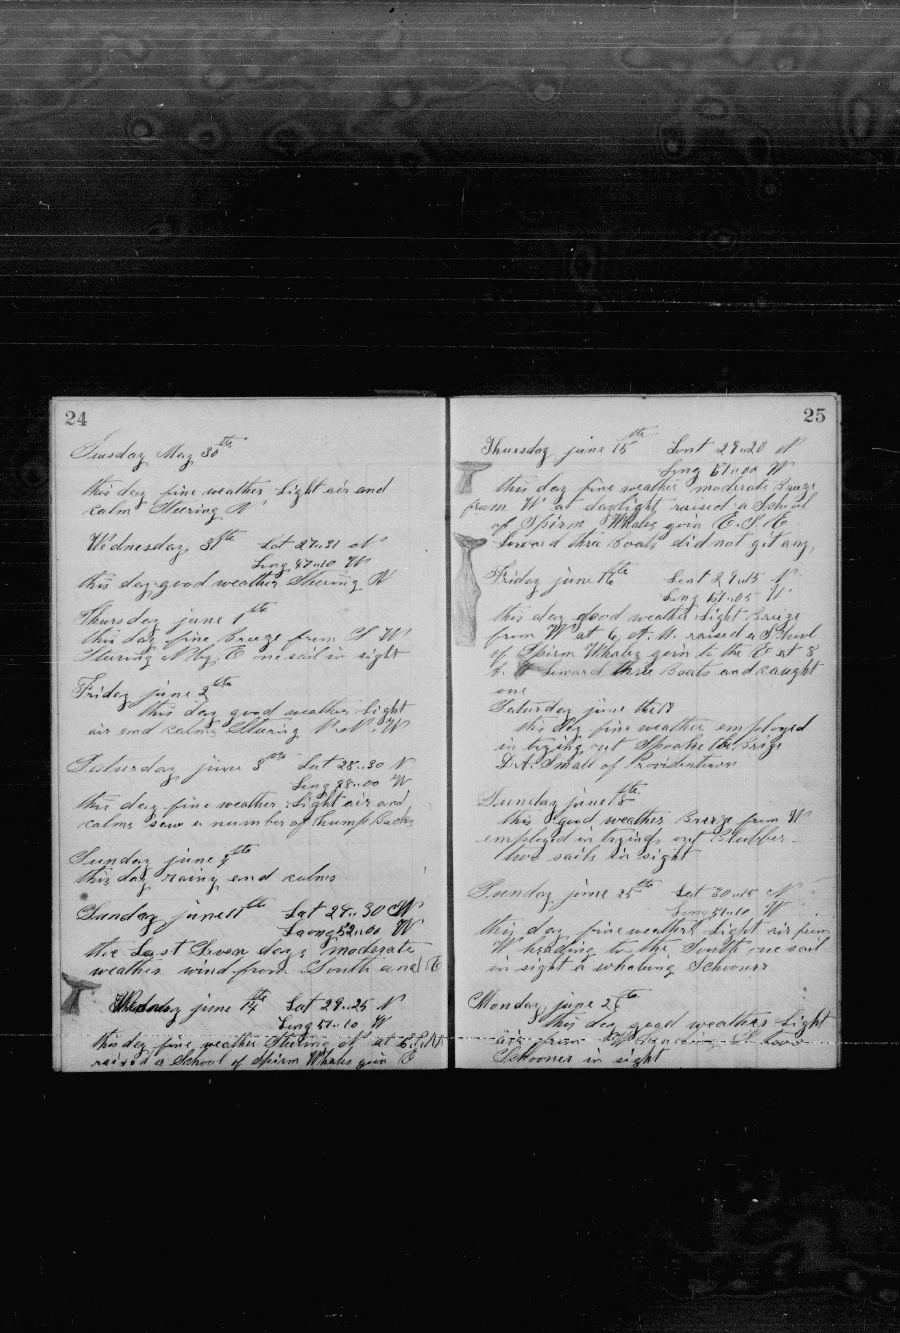 24
Tuesday May 30th
this day fine weather Light air and
calm Steering N
Wednesday 31th Lat 27..31 N
Long 47..10 W
this day good weather Steering N
Thursday june 1th
this day fine Breeze from S W
Stering N by E one sail in sight
Friday june 2th
this day good weather Light
air and calms Stering N W
Saturday june 3th Lat 28..30 N
Long 48..00 W
this day fine weather Light air and
calms saw a number of hump Backs
Sunday june 4th
this day rainy and calms
Sunday june 11th Lat 29..30 N
Laong 52..00 W
the Last Seven days moderate
weather wind from South and E
Wednesday june 14th Lat 29..25 N
Long 51..10 W
this day fine weather Stering N at 6. P. M
raised a School of Spirm Whales goin E
25
Thursday june 15th Lat 29..20 N
Long 51..00 W
this day fine weather moderate Breze
from W at daylight raised a School
of Spirm Whales goin E. S. E
Lowered three Boats did not get any,
Friday june 16th Lat 29..15 N
Long 51..05 W
this day good weather Light Breeze
from W at 6, A. M. raised a School
of Spirm Whales goin to the E at 8
Lowerd three Boats and caught
one
Saturday june the 17
this day fine weather employed
in trying out Spoake the Brige
D. A. Small of Providentown
Sunday june 18th
this good weather Breeze from W
employed in tryings out Blubber
two sails in sight
Sunday june 25th Lat 30..15 N
Long 51..10 W
this day fine weather Light air from
W heading to the South one sail
in sight a whaling Schooner
Monday june 26th
this day good weather Light
air from S two
Schooner in sight